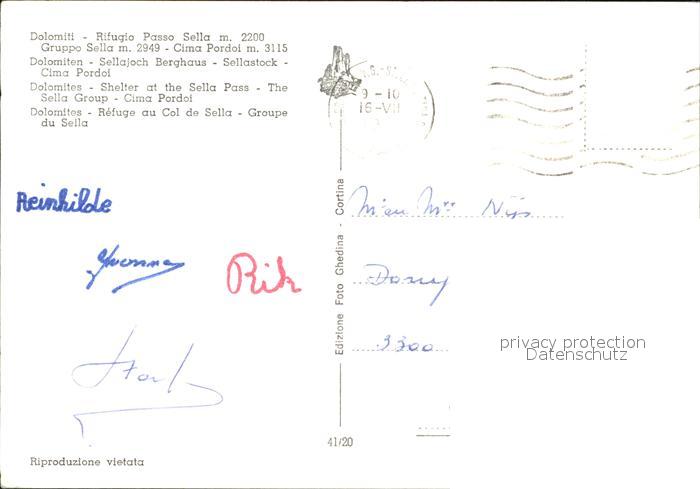 Dolomiti - Rifugio Passo Sella m. 2200
Gruppo Sella m. 2949 - Cima Pordoi m. 3115
Dolomiten - Sellajoch Berghaus - Sellastock -
Cima Pordoi
Dolomites - Shelter at the Sella Pass - The
Sella Group - Cima Pordoi
Dolomites - Réfuge au Col de Sella - Groupe
du Sella
9 - 10
16-VII
Reinhilde
Yvonne
Rik
Edizione Foto Ghedina - Cortina
3300
privacy protection
Datenschutz
41/20
Riproduzione vietata